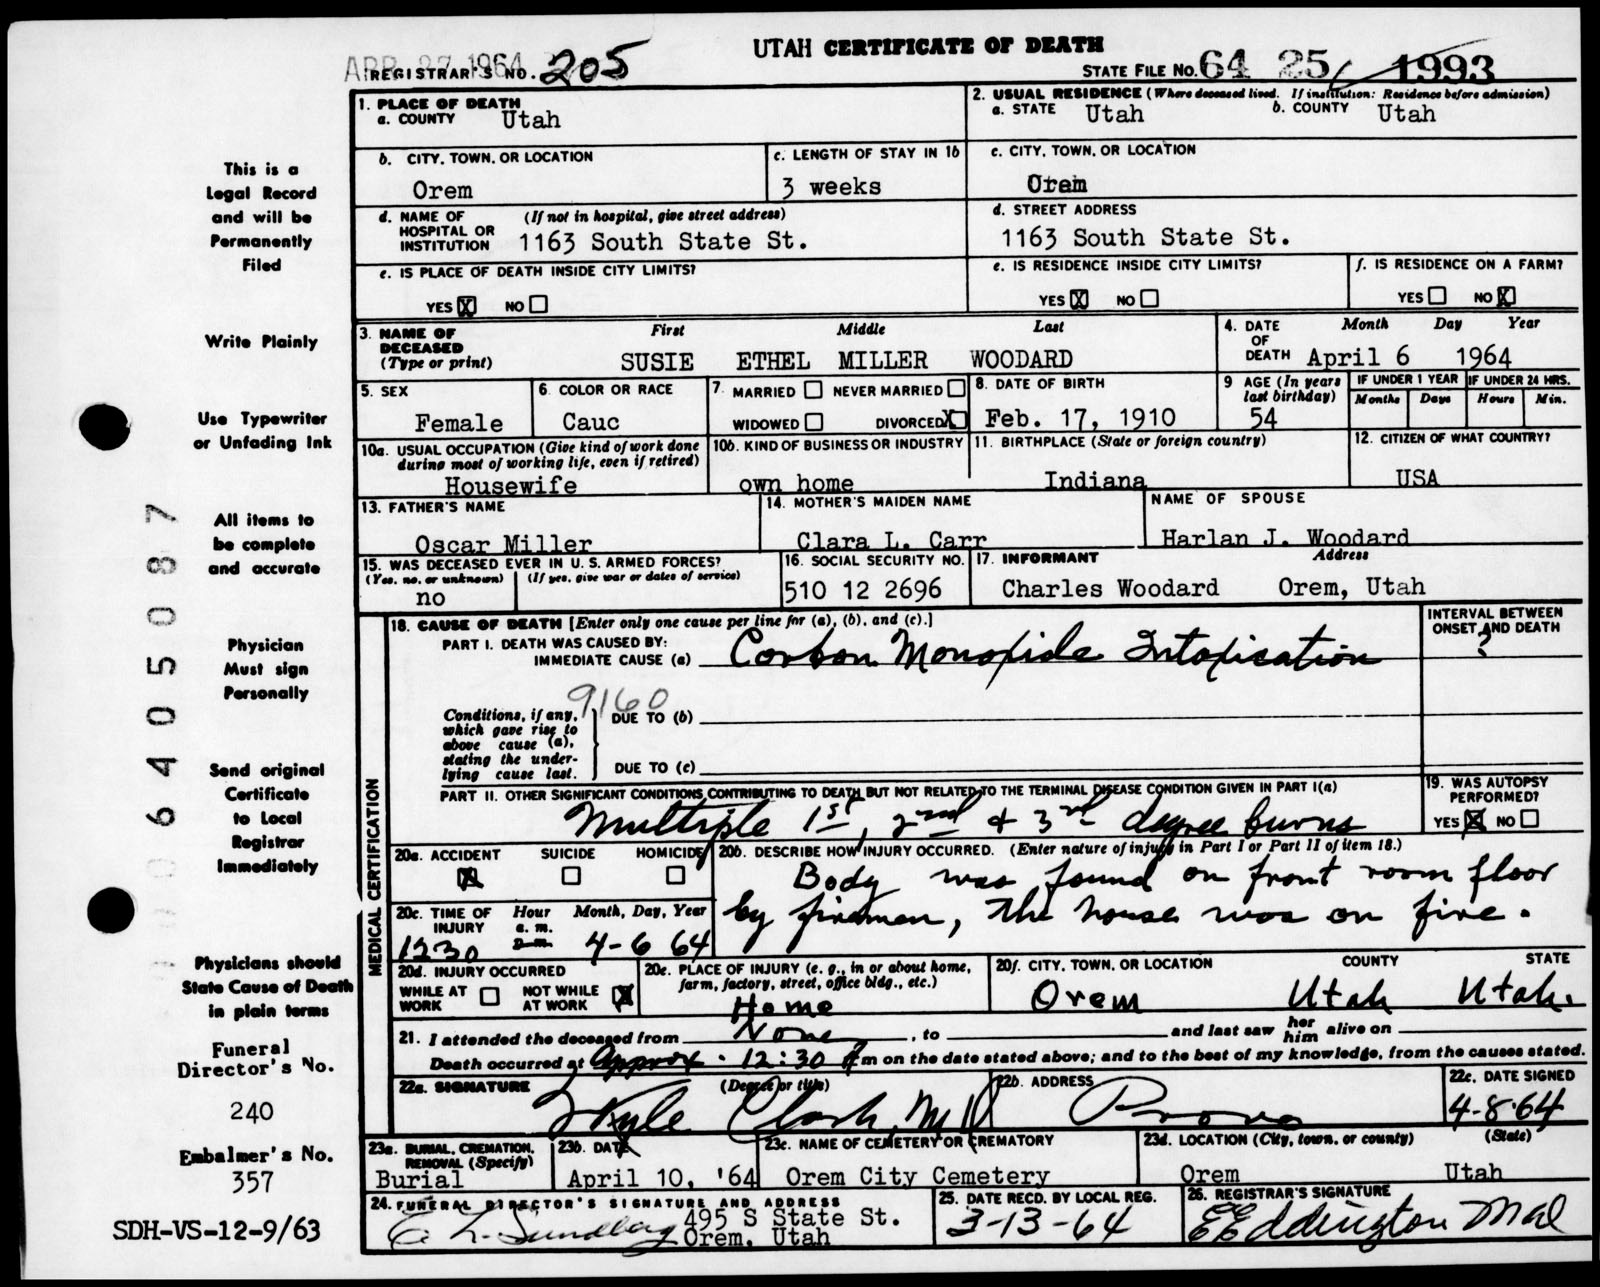 UTAH CERTIFICATE OF DEATH
APR 27 1964
REGISTRAR'S NO. 205
STATE FILE NO. 64 25 1993
1. PLACE OF DEATH
a. COUNTY Utah
2. USUAL RESIDENCE (Where deceased lived. If institution: Residence before admission)
a. STATE Utah b. COUNTY Utah
b. CITY, TOWN, OR LOCATION
Orem
c. LENGTH OF STAY IN 1b
3 weeks
c. CITY, TOWN, OR LOCATION
Orem
d. NAME OF HOSPITAL OR INSTITUTION (If not in hospital, give street address)
1163 South State St.
d. STREET ADDRESS
1163 South State St.
e. IS PLACE OF DEATH INSIDE CITY LIMITS?
YES X NO
e. IS RESIDENCE INSIDE CITY LIMITS?
YES X NO
f. IS RESIDENCE ON A FARM?
YES NO X
3. NAME OF DECEASED (Type or print)
First Middle Last
SUSIE ETHEL MILLER WOODARD
4. DATE OF DEATH
Month Day Year
April 6 1964
5. SEX
Female
6. COLOR OR RACE
Cauc
7. MARRIED NEVER MARRIED
WIDOWED DIVORCED X
8. DATE OF BIRTH
Feb. 17, 1910
9 AGE (In years last birthday)
54
IF UNDER 1 YEAR
Months Days
IF UNDER 24 HRS.
Hours Min.
10a. USUAL OCCUPATION (Give kind of work done during most of working life, even if retired)
Housewife
10b. KIND OF BUSINESS OR INDUSTRY
own home
11. BIRTHPLACE (State or foreign country)
Indiana
12. CITIZEN OF WHAT COUNTRY?
USA
13. FATHER'S NAME
Oscar Miller
14. MOTHER'S MAIDEN NAME
Clara L. Carr
NAME OF SPOUSE
Harlan J. Woodard
15. WAS DECEASED EVER IN U. S. ARMED FORCES?
(Yes, no, or unknown) (If yes, give war or dates of service)
no
16. SOCIAL SECURITY NO.
510 12 2696
17. INFORMANT Address
Charles Woodard Orem, Utah
MEDICAL CERTIFICATION
18. CAUSE OF DEATH [Enter only one cause per line for (a), (b), and (c).]
INTERVAL BETWEEN ONSET AND DEATH
?
PART I. DEATH WAS CAUSED BY:
IMMEDIATE CAUSE (a) Carbon Monoxide Intoxication
9160
Conditions, if any, which gave rise to above cause (a), stating the underlying cause last.
DUE TO (b)
DUE TO (c)
PART II. OTHER SIGNIFICANT CONDITIONS CONTRIBUTING TO DEATH BUT NOT RELATED TO THE TERMINAL DISEASE CONDITION GIVEN IN PART I(a)
Multiple 1st, 2nd & 3rd degree burns
19. WAS AUTOPSY PERFORMED?
YES X NO
20a. ACCIDENT SUICIDE HOMICIDE
X
20b. DESCRIBE HOW INJURY OCCURRED. (Enter nature of injury in Part I or Part II of item 18.)
Body was found on front room floor
by firemen, The house was on fire.
20c. TIME OF INJURY
Hour a. m. p. m.
Month, Day, Year
1230 4-6 64
20d. INJURY OCCURRED
WHILE AT WORK NOT WHILE AT WORK X
20e. PLACE OF INJURY (e. g., in or about home, farm, factory, street, office bldg., etc.)
Home
20f. CITY, TOWN, OR LOCATION COUNTY STATE
Orem Utah Utah.
21. I attended the deceased from None, to and last saw her him alive on
Death occurred at Approx. 12:30 A m on the date stated above; and to the best of my knowledge, from the causes stated.
22a. SIGNATURE (Degree or title)
Kyle Clark, MD
22b. ADDRESS
Provo
22c. DATE SIGNED
4-8-64
23a. BURIAL, CREMATION, REMOVAL (Specify)
Burial
23b. DATE
April 10, '64
23c. NAME OF CEMETERY OR CREMATORY
Orem City Cemetery
23d. LOCATION (City, town, or county) (State)
Orem Utah
24. FUNERAL DIRECTOR'S SIGNATURE AND ADDRESS
495 S State St.
Orem, Utah
25. DATE RECD. BY LOCAL REG.
3-13-64
26. REGISTRAR'S SIGNATURE
E E Eddington
This is a
Legal Record
and will be
Permanently
Filed
Write Plainly
Use Typewriter
or Unfading Ink
All items to
be complete
and accurate
Physician
Must sign
Personally
Send original
Certificate
to Local
Registrar
Immediately
Physicians should
State Cause of Death
in plain terms
Funeral
Director's No.
240
Embalmer's No.
357
SDH-VS-12-9/63
6405087